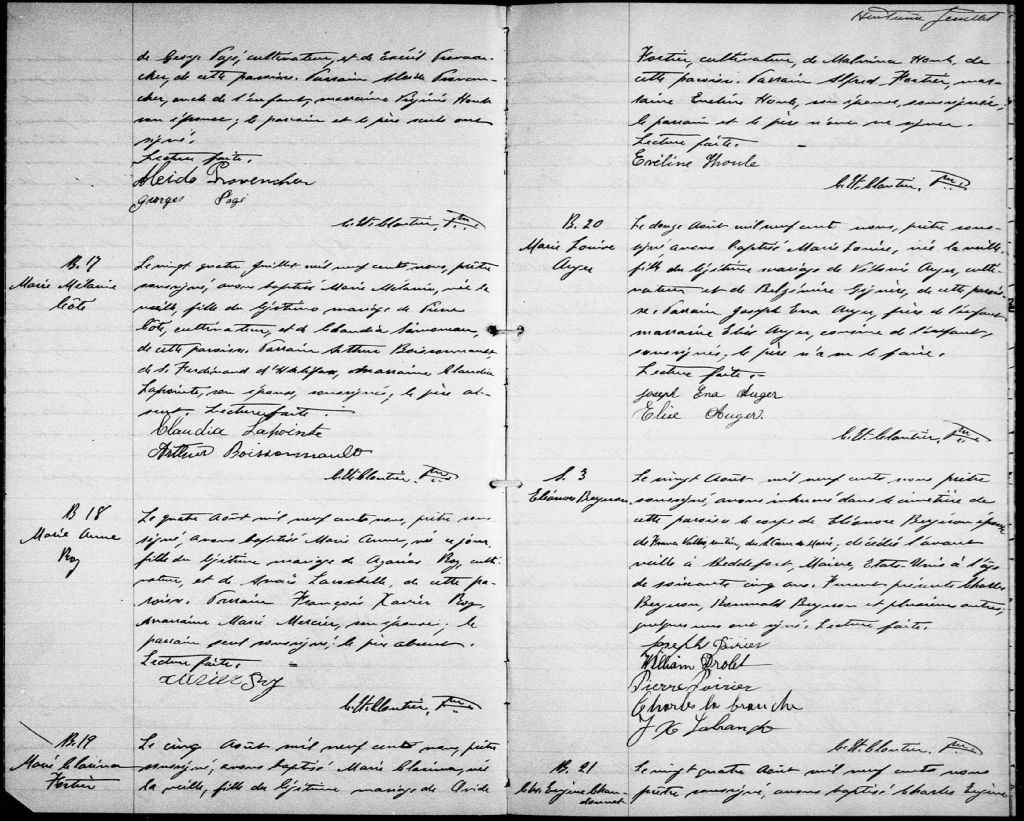 de George Pagé, cultivateur, et de Exéril Proven-
cher, de cette paroisse. Parrain Aleide Proven-
cher, oncle de l'enfant, marraine Virginie Houle
son épouse; le parrain et le père seuls ont
signé.
Lecture faite.
Aleide Provencher
Georges Pagé
C. H. Cloutier, Ptre
B. 17
Marie Mélanie
Côté
Le vingt quatre Juillet mil neuf cents, nous, prêtre
soussigné, avons baptisé Marie Mélanie, née la
veille, fille du légitime mariage de Pierre
Côté, cultivateur, et de Claudia
de cette paroisse. Parrain Arthur Boissonnault
de St Ferdinand d'Halifax, marraine Claudia
Lapointe, son épouse, soussignés; le père ab-
sent. Lecture faite.
Claudia Lapointe
Arthur Boissonnault
C. H. Cloutier. Ptre
B 18
Marie Anne
Roy
Le quatre Août mil neuf cents nous, prêtre sous-
signé avons baptisé Marie Anne, née ce jour,
fille du légitime mariage de Azarias Roy, culti-
vateur, et de Anaïs de cette pa-
roisse. Parrain François Xavier Roy,
marraine Marie Mercier, son épouse; le
parrain seul soussigné; le père absent.
Lecture faite.
xavier Roy
C. H. Cloutier, Ptre
B. 19
Marie Clarina
Fortier
Le cinq Août mil neuf cents nous, prêtre
soussigné, avons baptisé Marie Clarina, née
la veille, fille du légitime mariage de Ovide
Huitième feuillet
Fortier, cultivateur, de Malvina Houle, de
cette paroisse. Parrain Alfred Fortier, mar-
raine Eveline Houle, son épouse, soussignée;
le parrain et le père n'ont su signer.
Lecture faite.
Eveline Houle
C. H. Cloutier, Ptre
B. 20
Marie Louise
Auger
Le douze Août mil neuf cents nous, prêtre sous-
signé avons baptisé Marie Louise, née la veille,
fille du légitime mariage de Auger, culti-
vateur et de de cette parois-
se. Parrain Joseph Ena Auger, frère de l'enfant
marraine Elise Auger, cousine de l'enfant,
soussignés; le père n'a su le faire.
Lecture faite.
Joseph Ena Auger
Elise Auger.
C. H. Cloutier, Ptre
S. 3
Eléonore Bergeron
Le vingt Août mil neuf cents nous prêtre
soussigné, avons inhumé dans le cimetière de
cette paroisse le corps de Eléonore Bergeron épouse
de décédée l'avant
veille à Beddefort, Maine, Etats-Unis à l'âge
de soixante cinq ans. Furent présents Charles
Bergeron, Bergeron et plusieurs autres,
quelques uns ont signé. Lecture faite.
Joseph Poirier
William Drolet
Pierre Poirier
Charles la branche
J X Labranch
C. H. Cloutier. Ptre
B. 21
Chs Eugène Chan-
donnet
Le vingt quatre Août mil neuf cents nous
prêtre soussigné, avons baptisé Charles Eugène